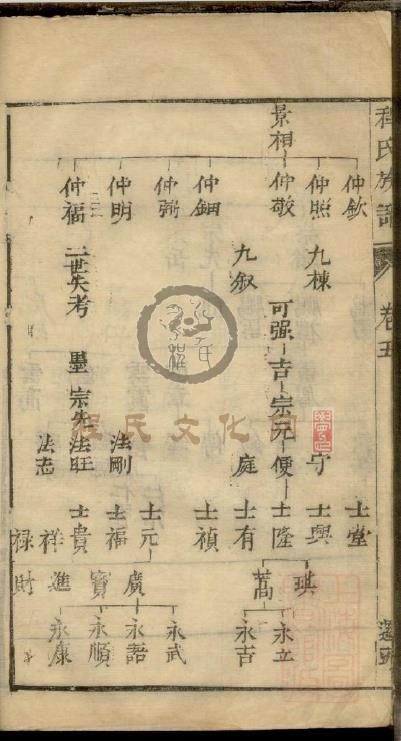 程氏族譜
卷五
仲欽
士堂
仲照
九棟
守
士興
琪
景相
仲敬
可强
吉
宗元
便
士隆
永立
九叙
庭
士有
蒿
永吉
仲鈿
士禎
仲鼎
士元
廣
永武
永語
仲明
法剛
士福
寶
永順
仲福
二世失考
墨
宗先
法旺
士貴
進
永康
法志
祥
財
禄
程氏文化网